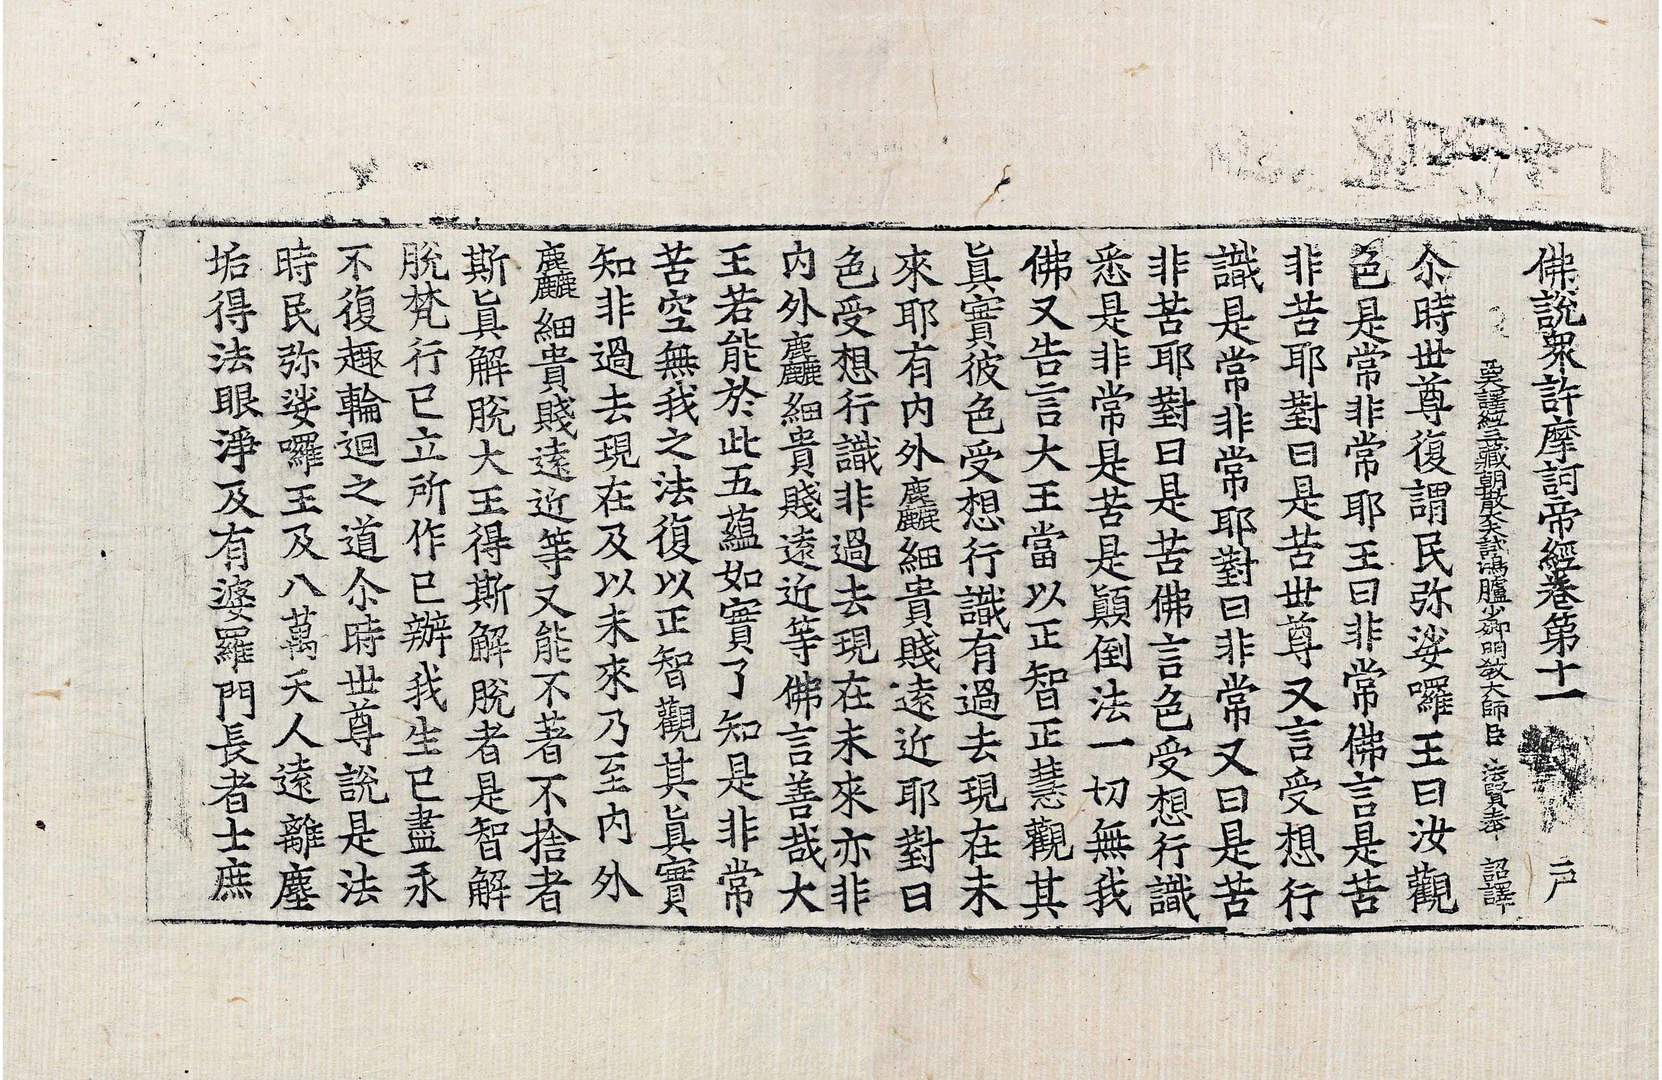 佛說衆許摩訶帝經卷第十一 戶
西天譯經三藏朝散大夫試鴻臚少卿明教大師臣 法賢奉 詔譯
尒時世尊復謂民弥娑囉王曰汝觀
色是常非常耶王曰非常佛言是苦
非苦耶對曰是苦世尊又言受想行
識是常非常耶對曰非常又曰是苦
非苦耶對曰是苦佛言色受想行識
悉是非常是苦是顚倒法一切無我
佛又告言大王當以正智正慧觀其
眞實彼色受想行識有過去現在未
來耶有内外麤細貴賤遠近耶對曰
色受想行識非過去現在未來亦非
内外麤細貴賤遠近等佛言善哉大
王若能於此五蘊如實了知是非常
苦空無我之法復以正智觀其眞實
知非過去現在及以未來乃至内外
麤細貴賤遠近等又能不著不捨者
斯眞解脫大王得斯解脫者是智解
脫梵行已立所作已辦我生已盡永
不復趣輪迴之道尒時世尊說是法
時民弥娑囉王及八萬天人遠離塵
垢得法眼淨及有婆羅門長者士庶